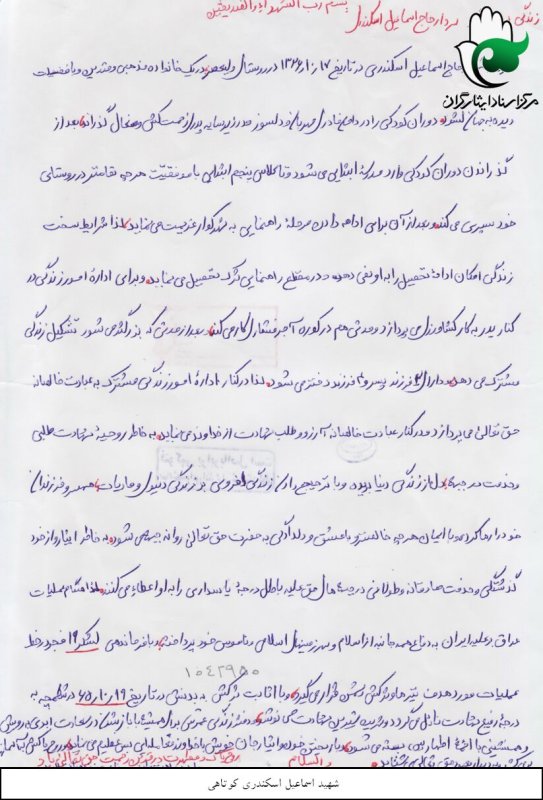 بسم رب الشهداء والصدیقین
زندگی
سردار حاج اسماعیل اسکندری
مرکز اسناد ایثارگران
حاج اسماعیل اسکندری در تاریخ ۱۳۲۶/۱۰/۱۷ در روستای در یک خانواده مذهبی و متدین و بافضیلت
دیده به جهان گشود دوران کودکی را در دامان مادری مهربان و دلسوز و در زیر سایه پدری زحمت کش و فعال گذراند بعد از
گذراندن دوران کودکی وارد مدرسه ابتدایی می شود و تا کلاس پنجم ابتدایی با موفقیت هر چه تمامتر در روستای
خود سپری می کند و بعد از آن برای ادامه دادن مرحله راهنمایی به عزیمت می نماید لذا شرایط سخت
زندگی امکان ادامه تحصیل را به او نمی دهد و در مقطع راهنمایی ترک تحصیل می نماید و برای اداره امور زندگی در
کنار پدر به کار کشاورزی می پردازد و مدتی هم در کوره آجر فشاری کار می کند بعد از مدتی که بزرگتر می شود تشکیل زندگی
مشترک می دهد و دارای ۲ فرزند پسر و ۲ فرزند دختر می شود لذا در کنار اداره امور زندگی مشترک به عبادت خالصانه
حق تعالی می پردازد و در کنار عبادت خالصانه آرزو و طلب شهادت از خداوند می نماید به خاطر روحیه شهادت طلبی
و خدمت در جبهه دل از زندگی دنیا بریده و با ترجیح دادن زندگی اخروی بر زندگی دنیوی و مادیات همسر و فرزندان
خود را رها کرده و با ایمان هر چه خالصتر و با عشق و دلدادگی به حضرت حق تعالی روانه جبهه می شود به خاطر ایثار و از خود
گذشتگی و خدمت صادقانه و طولانی در جبهه های حق علیه باطل درجه پاسداری را به او اعطاء می کنند لذا هنگام عملیات
عراق بر علیه ایران به دفاع همه جانبه از اسلام و سرزمین های اسلامی و ناموس خود پرداخته با فرماندهی لشکر ۱۹ فجر در خط
۱۰۴۲۹۵۰
عملیات مورد هدف تیر و ترکش دشمن قرار می گیرد و با اصابت ترکش به بدنش در تاریخ ۶۵/۱۰/۱۹ در شلمچه به
درجه رفیع شهادت نائل می گردد و شربت شیرین شهادت می نوشد
والسلام
شهید اسماعیل اسکندری کوتاهی